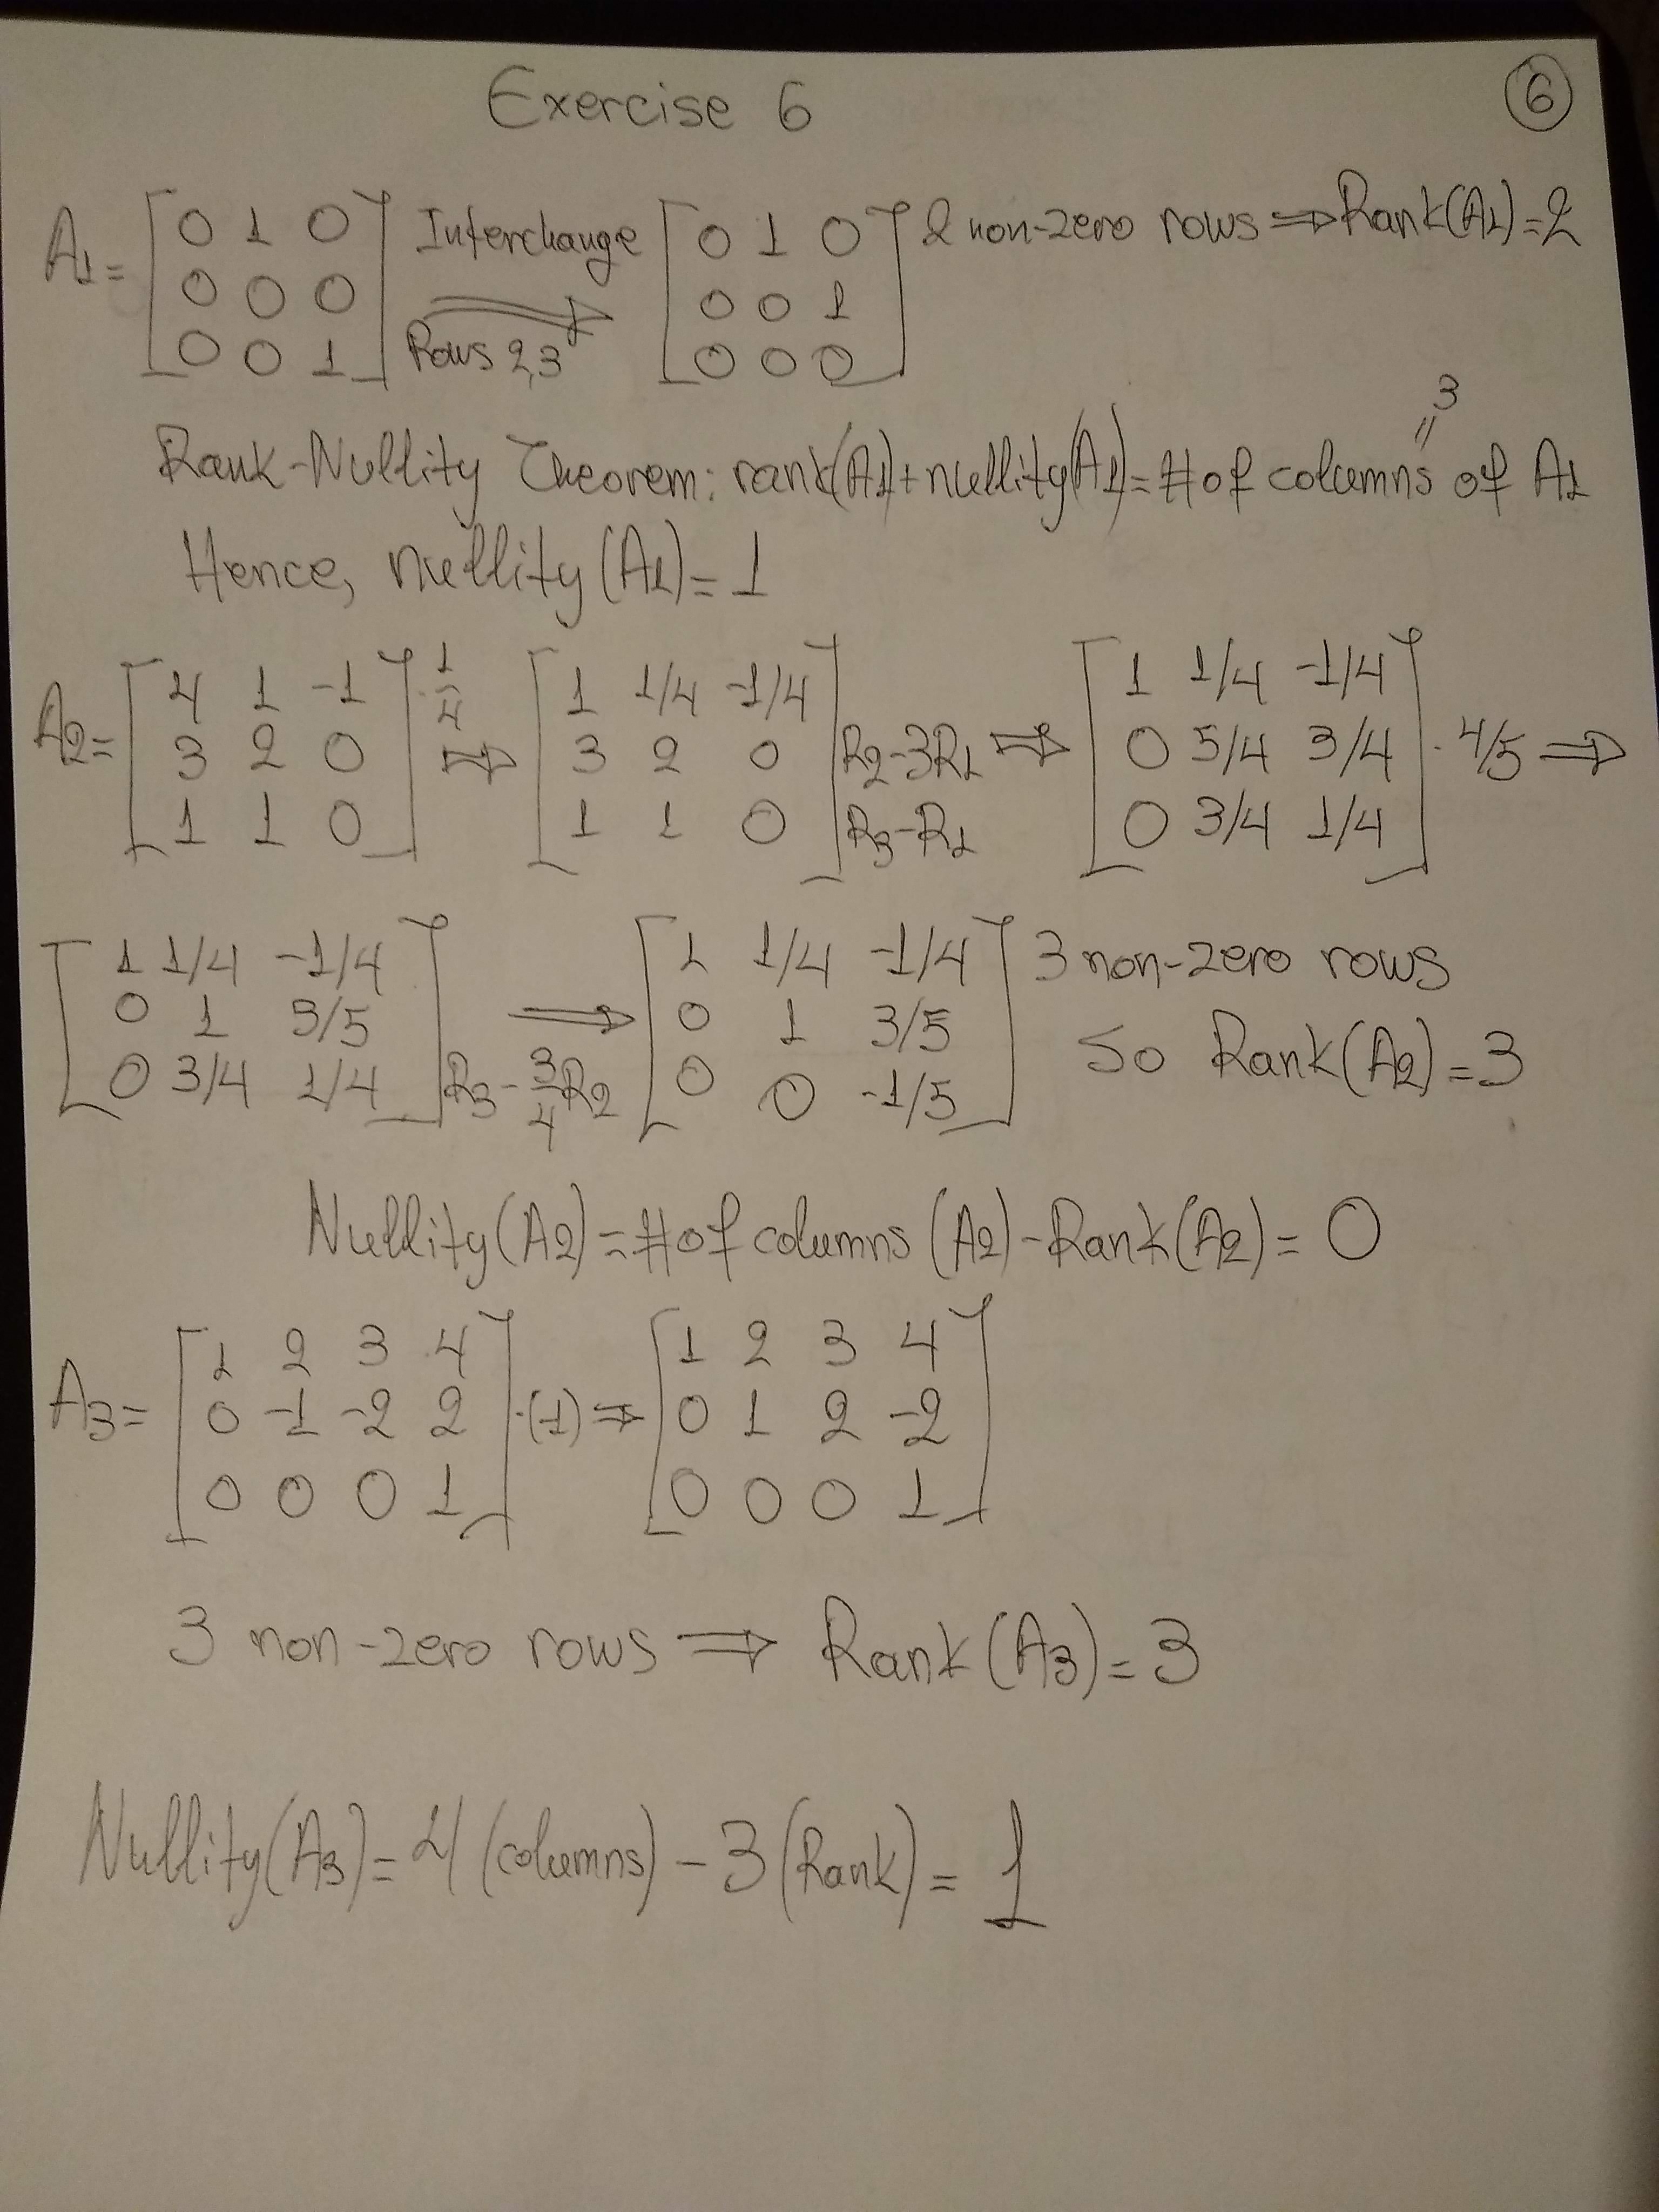 Exercise 6
6
A1 = [0 1 0; 0 0 0; 0 0 1] Interchange Rows 2,3 ⇒ [0 1 0; 0 0 1; 0 0 0] 2 non-zero rows ⇒ Rank(A1)=2
3
||
Rank-Nullity Theorem: rank(A1)+nullity(A1)=# of columns of A1
Hence, nullity(A1)=1
A2 = [4 1 -1; 3 2 0; 1 1 0] · 1/4 ⇒ [1 1/4 -1/4; 3 2 0; 1 1 0] R2-3R1 R3-R1 ⇒ [1 1/4 -1/4; 0 5/4 3/4; 0 3/4 1/4] · 4/5 ⇒
[1 1/4 -1/4; 0 1 3/5; 0 3/4 1/4] R3-3/4R2 ⇒ [1 1/4 -1/4; 0 1 3/5; 0 0 -1/5] 3 non-zero rows
so Rank(A2)=3
Nullity(A2)=# of columns (A2)-Rank(A2)=0
A3 = [1 2 3 4; 0 -1 -2 2; 0 0 0 1] ·(-1) ⇒ [1 2 3 4; 0 1 2 -2; 0 0 0 1]
3 non-zero rows ⇒ Rank(A3)=3
Nullity(A3)=4(columns)-3(Rank)=1